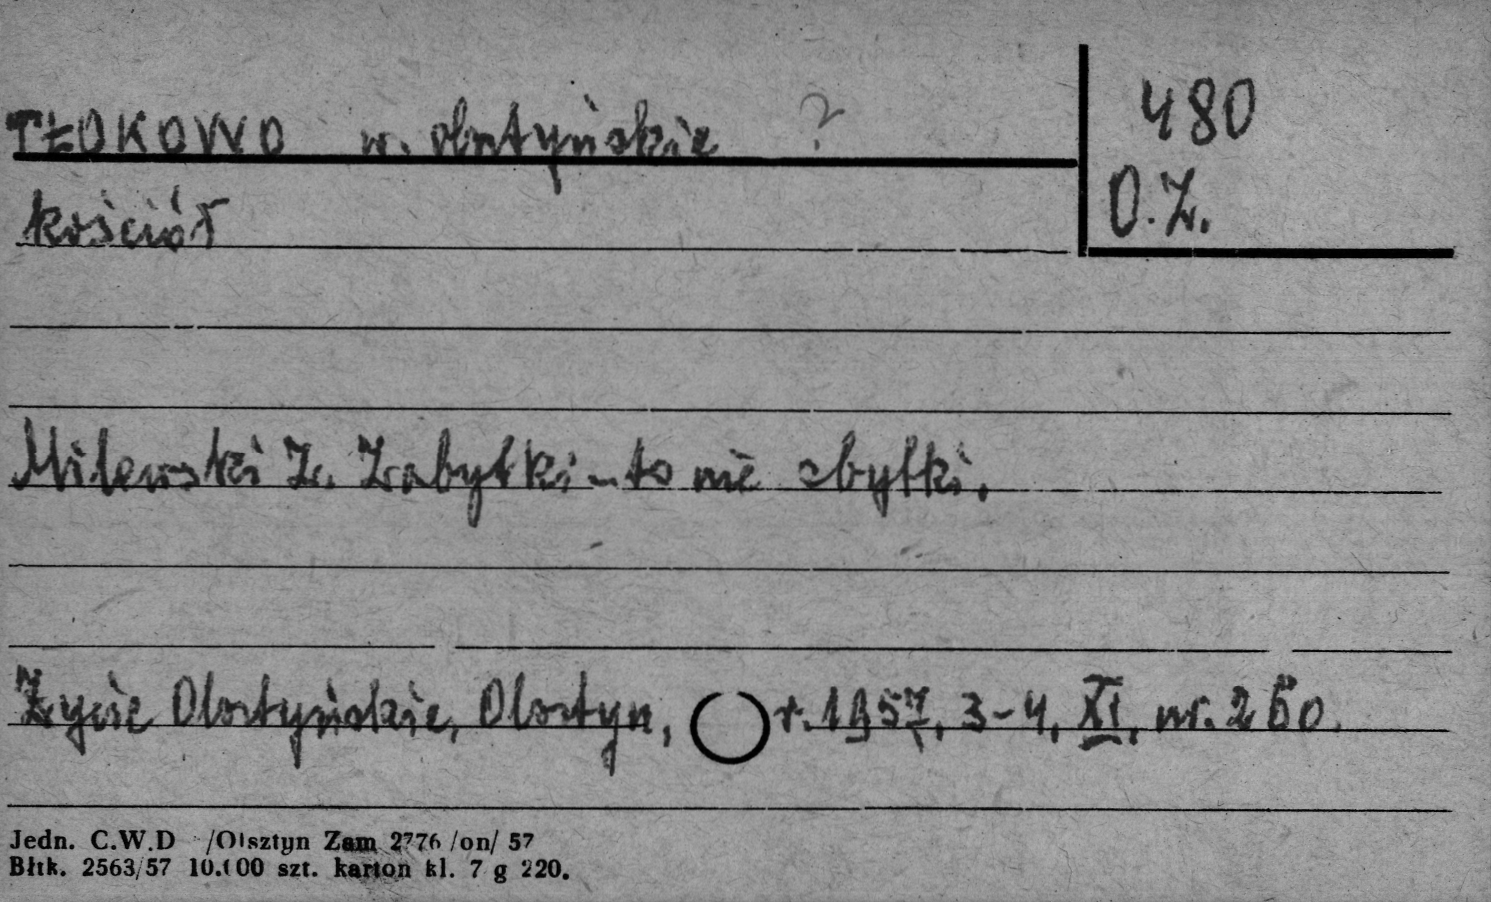 TŁOKOWO w. olsztyńskie ?
480
O.Z.
kościół
Milewski Z. Zabytki - to nie zbytki.
Życie Olsztyńskie, Olsztyn, r. 1957, 3-4, XI, nr. 260.
Jedn. C.W.D /Olsztyn Zam 2776 /on/ 57
Bltk. 2563/57 10.000 szt. karton kl. 7 g 220.